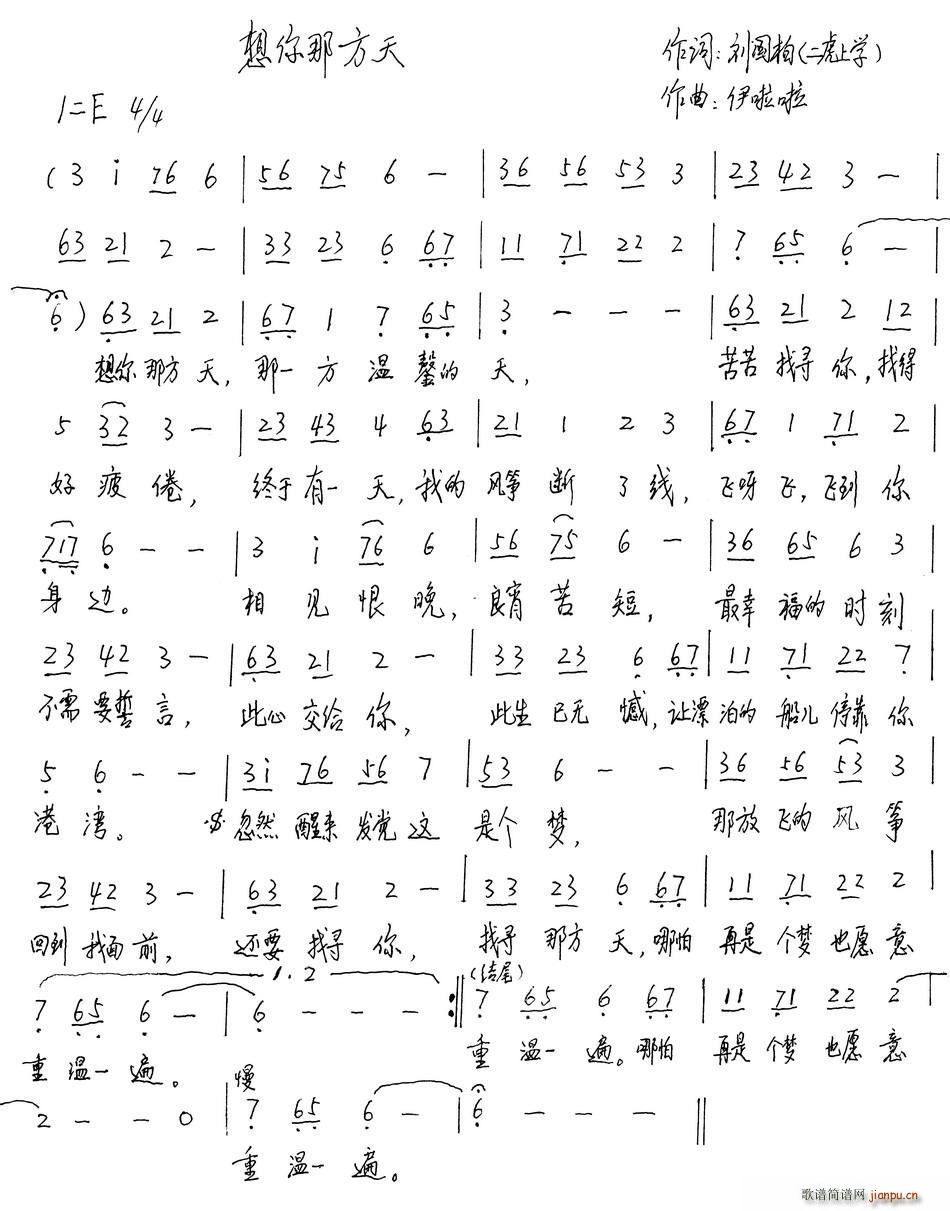 想你那方天
作词：刘国柏（二虎上学）
作曲：伊啦啦
1=E 4/4
( 3 i 76 6 | 56 75 6 - | 36 56 53 3 | 23 42 3 - |
63 21 2 - | 33 23 6 67 | 11 71 22 2 | 7 65 6 - |
6 ) 63 21 2 | 67 1 7 65 | 3 - - - | 63 21 2 12 |
想你那方天，那一方温馨的天，苦苦找寻你，找得
5 32 3 - | 23 43 4 63 | 21 1 2 3 | 67 1 71 2 |
好疲倦，终于有一天，我的风筝断了线，飞呀飞，飞到你
717 6 - - | 3 i 76 6 | 56 75 6 - | 36 65 6 3 |
身边。相见恨晚，良宵苦短，最幸福的时刻
23 42 3 - | 63 21 2 - | 33 23 6 67 | 11 71 22 7 |
不需要誓言，此心交给你，此生已无憾，让漂泊的船儿停靠你
5 6 - - | 3i 76 56 7 | 53 6 - - | 36 56 53 3 |
港湾。𝄋忽然醒来发觉这是个梦，那放飞的风筝
23 42 3 - | 63 21 2 - | 33 23 6 67 | 11 71 22 2 |
回到我面前，还要找寻你，找寻那方天，哪怕再是个梦也愿意
1.2 (结尾)
7 65 6 - | 6 - - - :|| 7 65 6 67 | 11 71 22 2 |
重温一遍。慢 重温一遍。哪怕再是个梦也愿意
2 - - 0 | 7 65 6 - | 6 - - - ||
重温一遍。
歌谱简谱网 jianpu.cn